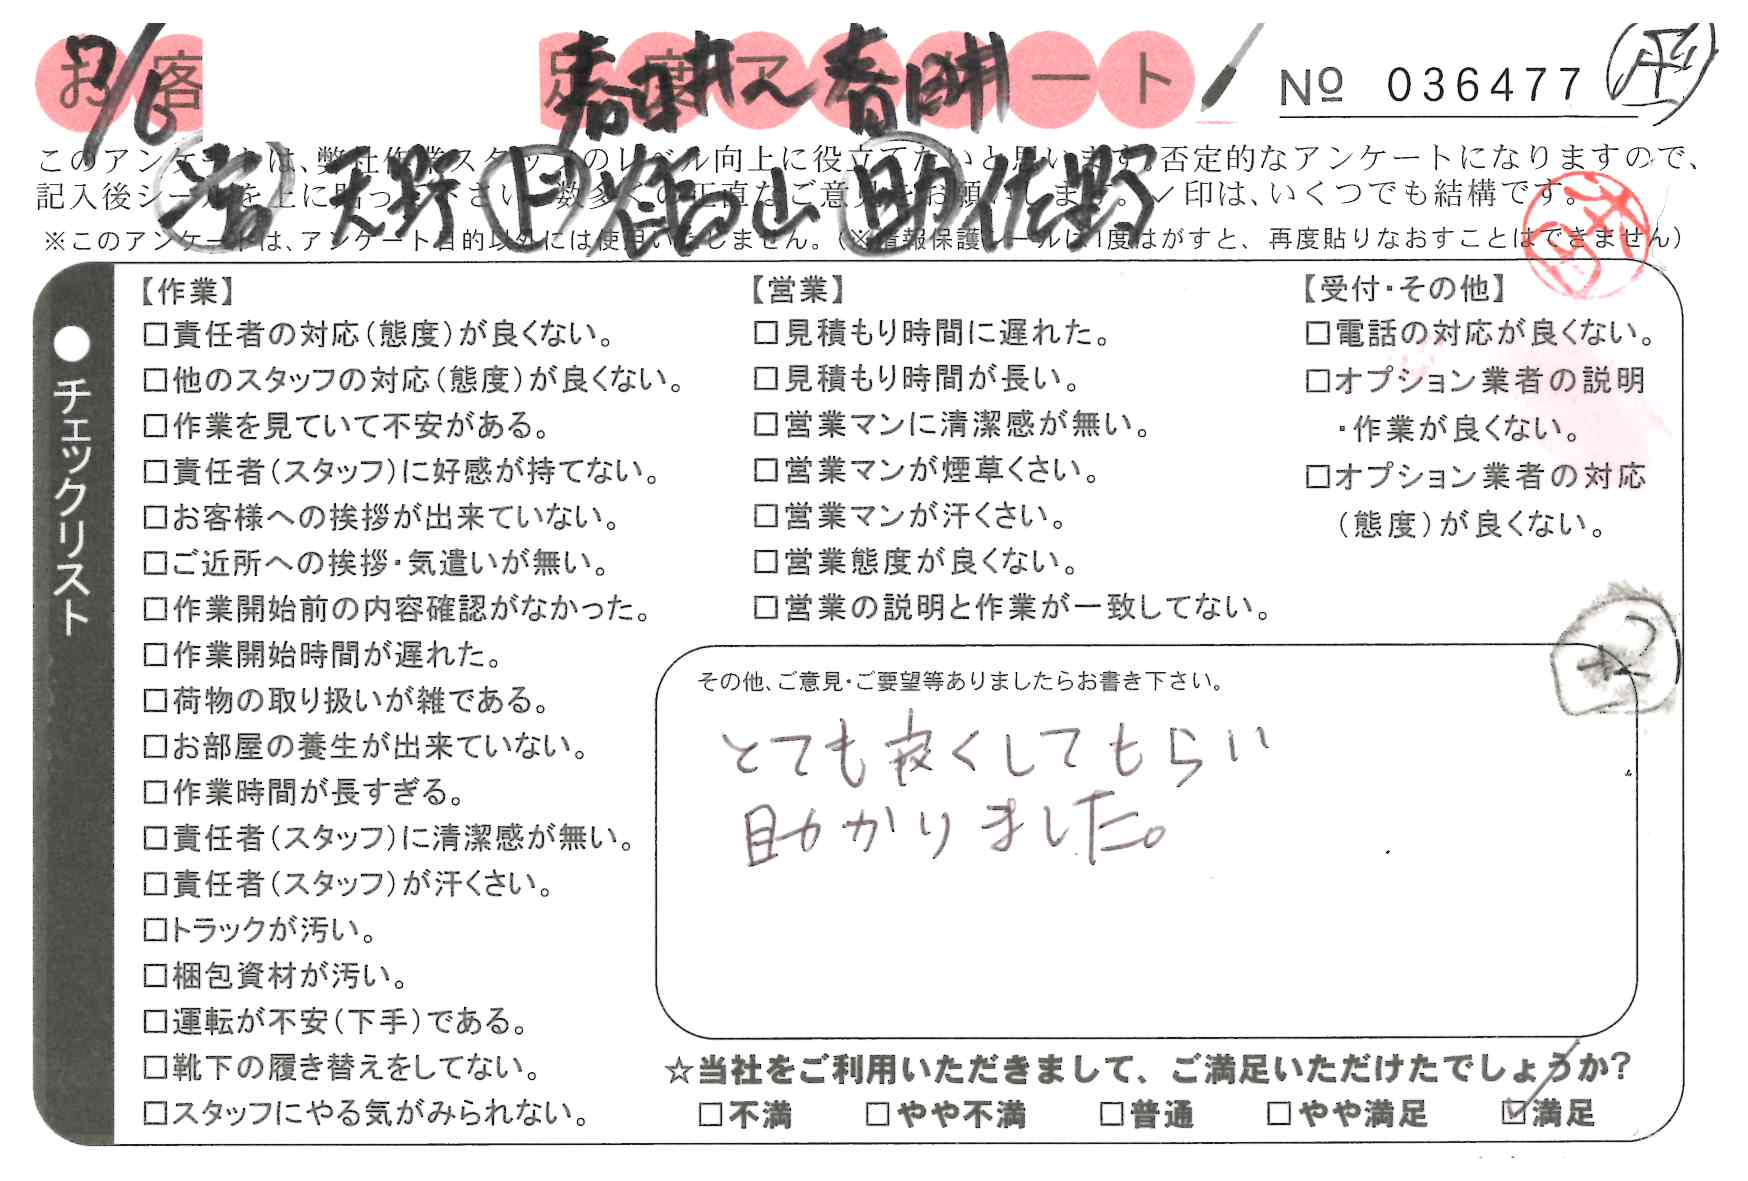 7/6 春日井〜春日井
お客 足度アンケート No 036477
このアンケートは、弊社作業スタッフのレベル向上に役立てたいと思います。否定的なアンケートになりますので、
記入後シールを上に貼って下さい。数多くの正直なご意見をお願いします。✓印は、いくつでも結構です。
天野 福山 助 佐野
※このアンケートは、アンケート目的以外には使用いたしません。(※情報保護シールは1度はがすと、再度貼りなおすことはできません)
●チェックリスト
【作業】
□責任者の対応(態度)が良くない。
□他のスタッフの対応(態度)が良くない。
□作業を見ていて不安がある。
□責任者(スタッフ)に好感が持てない。
□お客様への挨拶が出来ていない。
□ご近所への挨拶・気遣いが無い。
□作業開始前の内容確認がなかった。
□作業開始時間が遅れた。
□荷物の取り扱いが雑である。
□お部屋の養生が出来ていない。
□作業時間が長すぎる。
□責任者(スタッフ)に清潔感が無い。
□責任者(スタッフ)が汗くさい。
□トラックが汚い。
□梱包資材が汚い。
□運転が不安(下手)である。
□靴下の履き替えをしてない。
□スタッフにやる気がみられない。
【営業】
□見積もり時間に遅れた。
□見積もり時間が長い。
□営業マンに清潔感が無い。
□営業マンが煙草くさい。
□営業マンが汗くさい。
□営業態度が良くない。
□営業の説明と作業が一致してない。
【受付・その他】
□電話の対応が良くない。
□オプション業者の説明
・作業が良くない。
□オプション業者の対応
(態度)が良くない。
その他、ご意見・ご要望等ありましたらお書き下さい。
とても良くしてもらい
助かりました。
☆当社をご利用いただきまして、ご満足いただけたでしょうか?
□不満 □やや不満 □普通 □やや満足 ☑満足